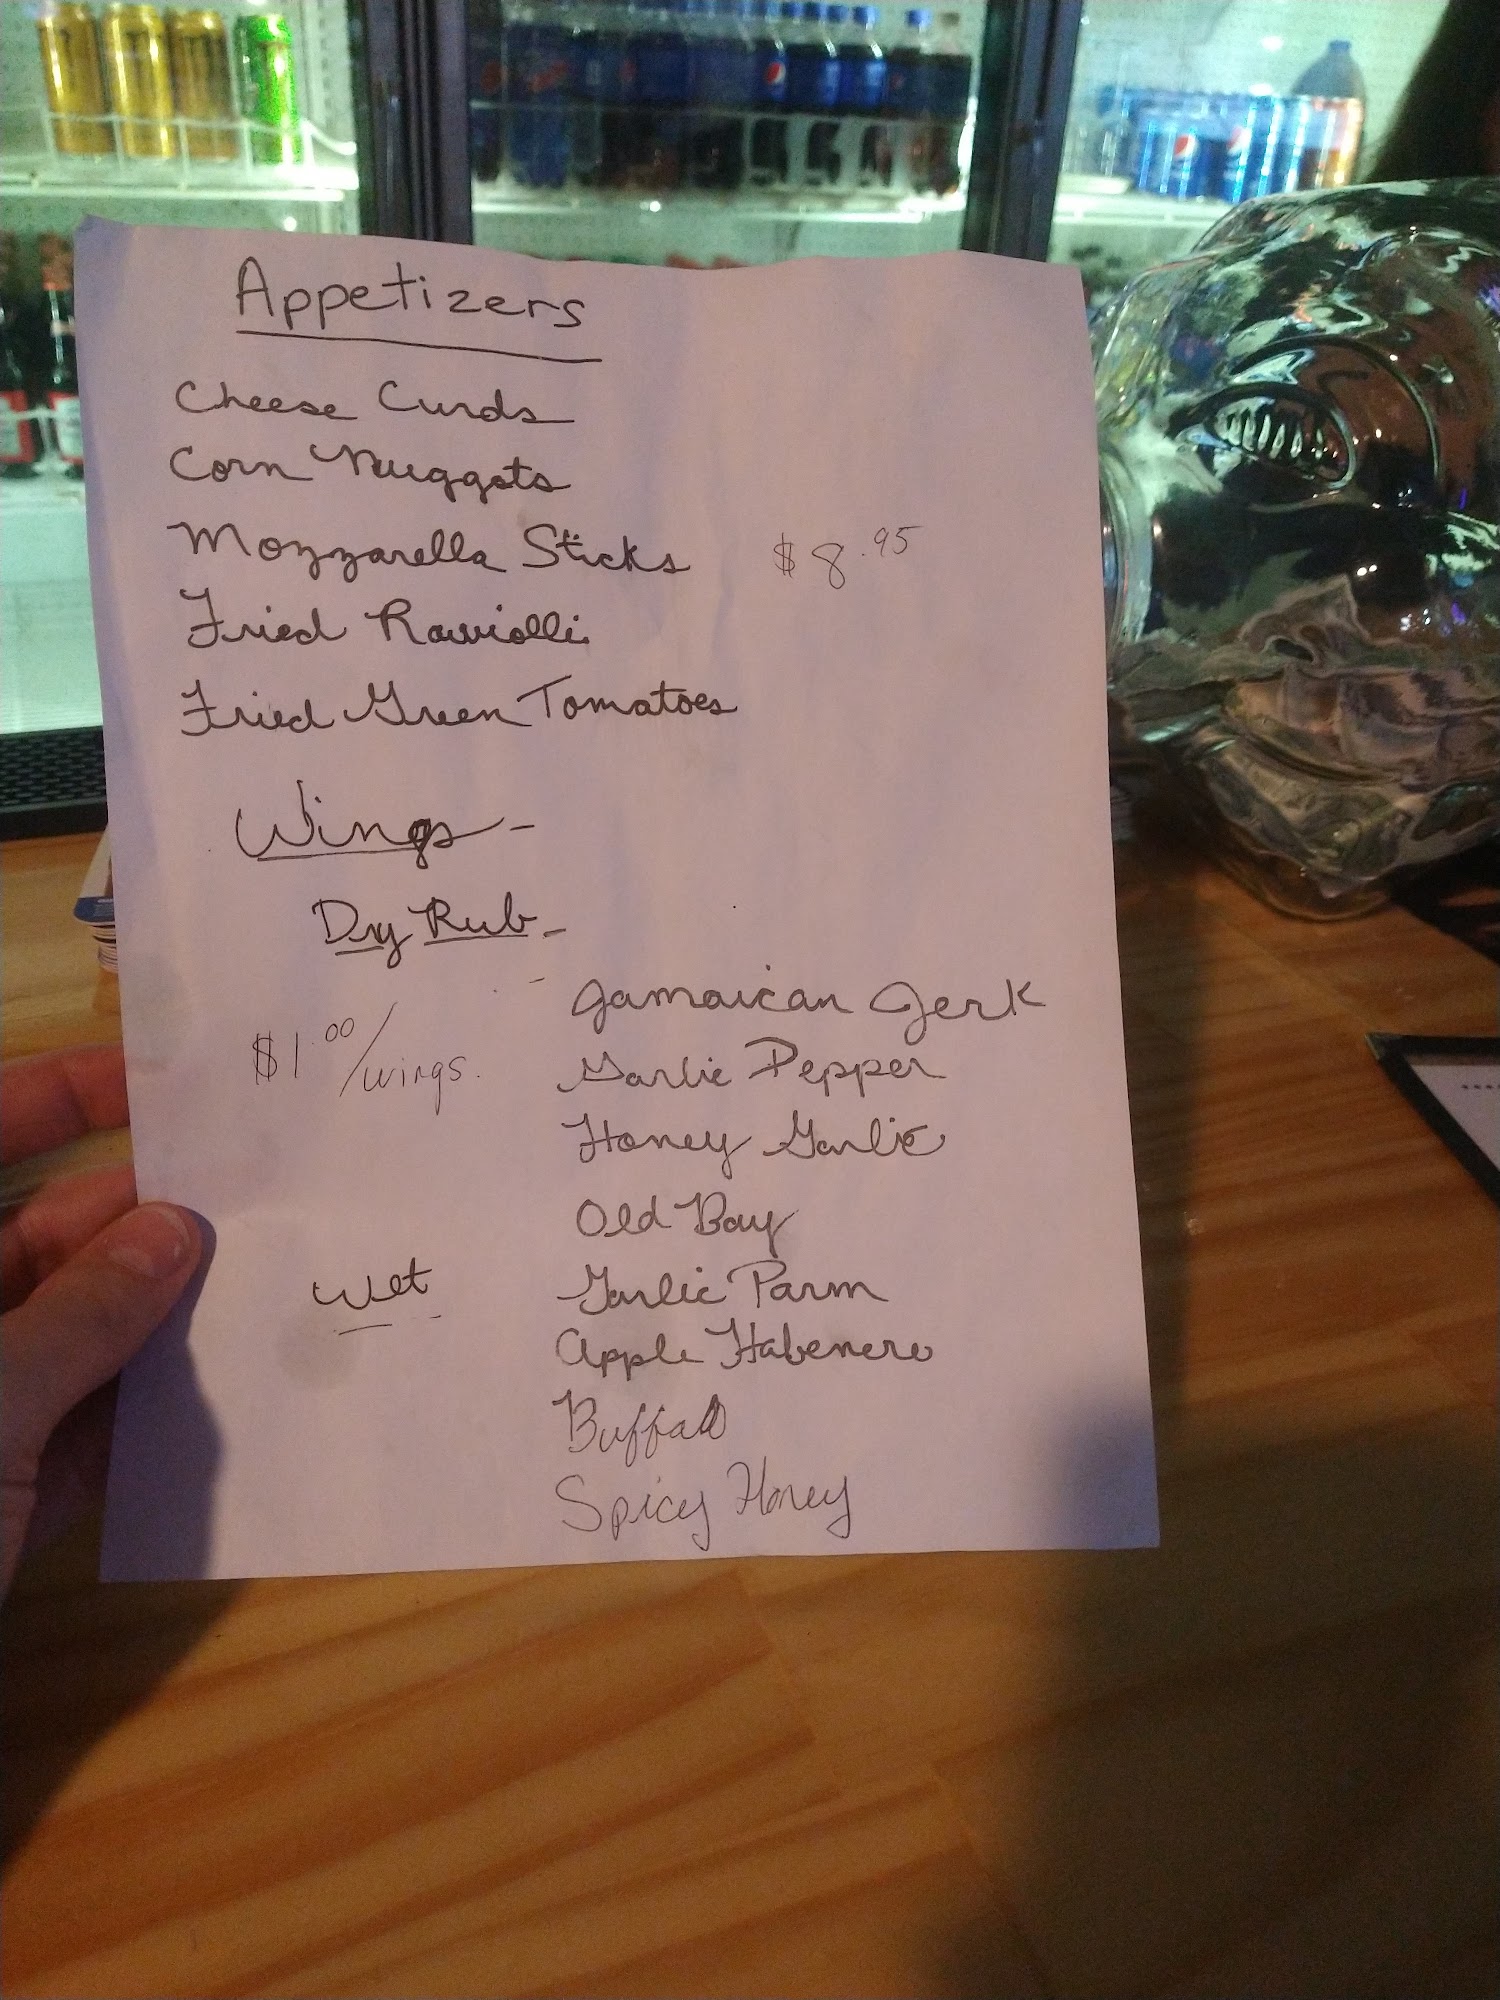 Appetizers
Cheese Curds
Corn Nuggets
Mozzarella Sticks $8.95
Fried Raviolli
Fried Green Tomatoes
Wings -
Dry Rub -
- Jamaican Jerk
$1.00/wings. Garlic Pepper
Honey Garlic
Old Bay
Wet Garlic Parm
Apple Habenero
Buffalo
Spicy Honey